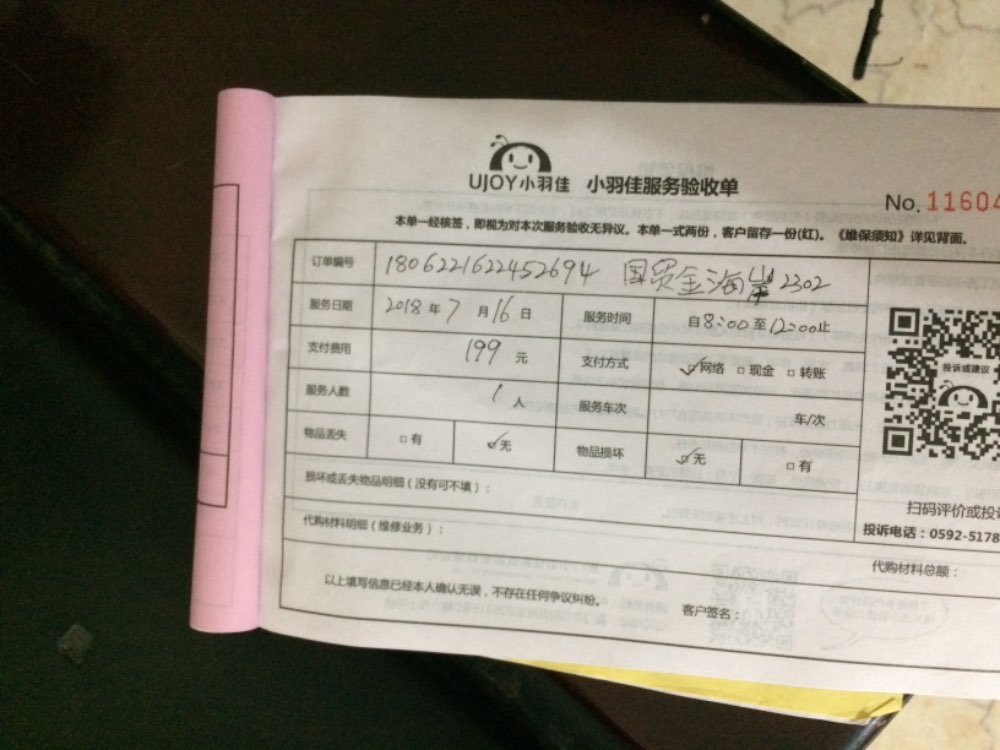 UJOY小羽佳 小羽佳服务验收单
No. 11604
本单一经核签，即视为对本次服务验收无异议。本单一式两份，客户留存一份(红)。《维保须知》详见背面。
订单编号 1806221622452694 国贸金海岸2302
服务日期 2018年7月16日 服务时间 自8:00至12:00止
支付费用 199元 支付方式 ☑网络 □现金 □转账
服务人数 1人 服务车次 车/次
物品丢失 □有 ☑无 物品损坏 ☑无 □有
损坏或丢失物品明细（没有可不填）：
代购材料明细（维修业务）：
投诉或建议
扫码评价或投诉
投诉电话：0592-5178
代购材料总额：
以上填写信息已经本人确认无误，不存在任何争议纠纷。 客户签名：